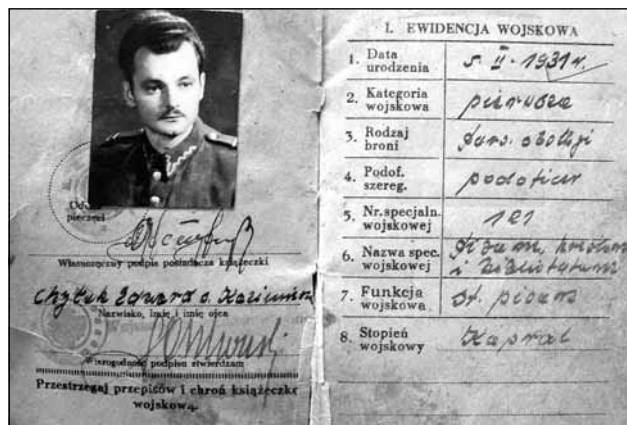 Własnoręczny podpis posiadacza książeczki
Chytek Edward s. Kazimierza
Nazwisko, imię i imię ojca
Wiarogodność podpisu stwierdzam
Przestrzegaj przepisów i chroń książeczkę
wojskową.
I. EWIDENCJA WOJSKOWA
1. Data urodzenia 5. II. 1931 r.
2. Kategoria wojskowa pierwsza
3. Rodzaj broni
4. Podof. szereg. podoficer
5. Nr. specjaln. wojskowej 121
6. Nazwa spec. wojskowej
7. Funkcja wojskowa st. pisarz
8. Stopień wojskowy Kapral